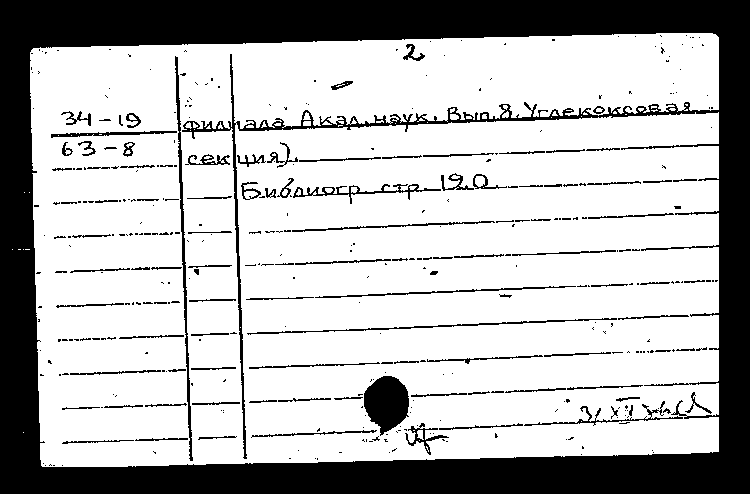 2
34-19 филиала Акад. наук. Вып. 8. Углекоксовая
63-8 секция).
Библиогр. стр. 190.